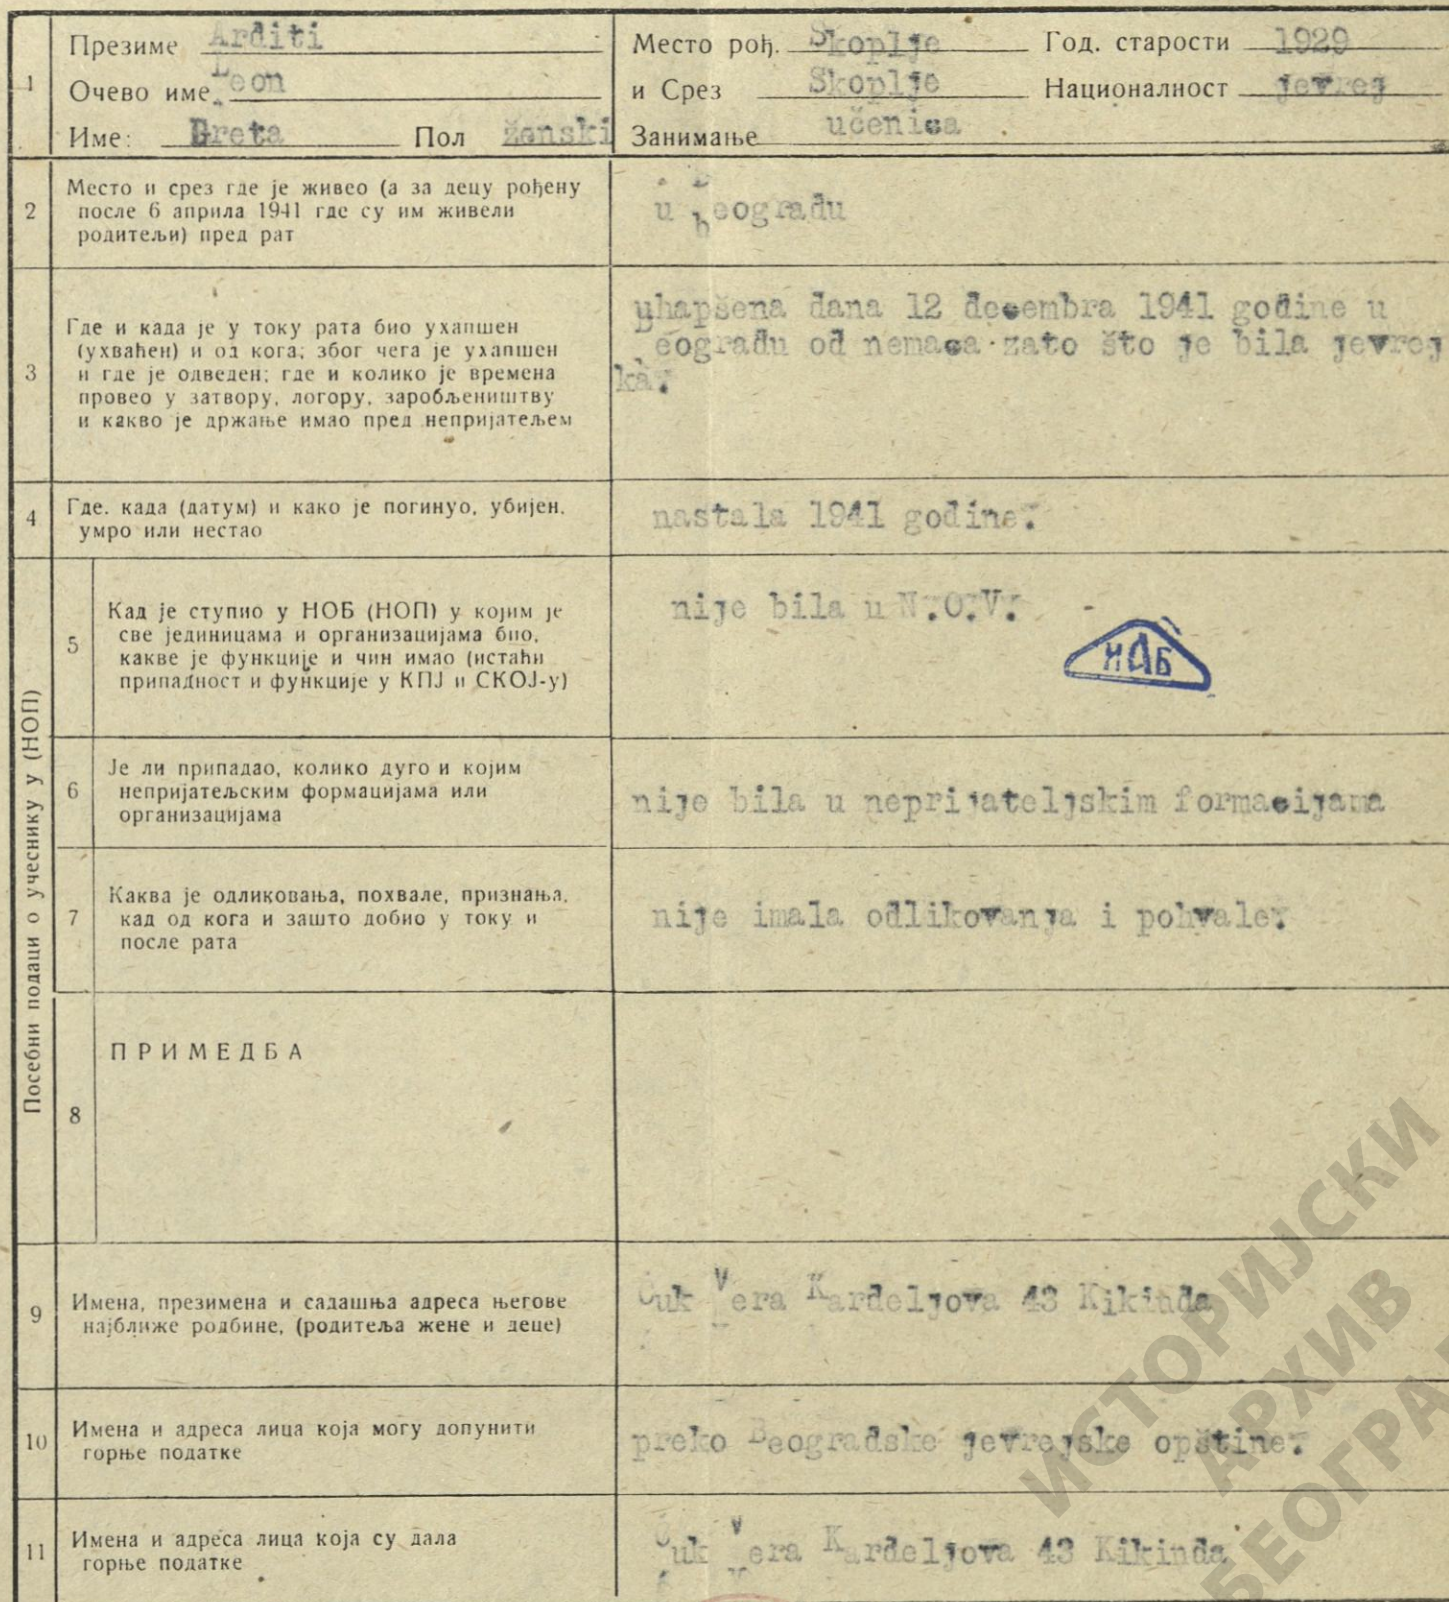 1
Презиме Arditi
Очево име Leon
Име: Greta Пол ženski
Место рођ. Skoplje Год. старости 1929
и Срез Skoplje Националност jevrej
Занимање učenica
2
Место и срез где је живео (а за децу рођену
после 6 априла 1941 где су им живели
родитељи) пред рат
u Beogradu
3
Где и када је у току рата био ухапшен
(ухваћен) и од кога; због чега је ухапшен
и где је одведен; где и колико је времена
провео у затвору, логору, заробљеништву
и какво је држање имао пред непријатељем
uhapšena dana 12 decembra 1941 godine u
eogradu od nemaca zato što je bila jevrej
ka.
4
Где, када (датум) и како је погинуо, убијен,
умро или нестао
nastala 1941 godine.
Посебни подаци о учеснику у (НОП)
5
Кад је ступио у НОБ (НОП) у којим је
све јединицама и организацијама био,
какве је функције и чин имао (истаћи
припадност и функције у КПЈ и СКОЈ-у)
nije bila u N.O.V.
НАБ
6
Је ли припадао, колико дуго и којим
непријатељским формацијама или
организацијама
nije bila u neprijateljskim formacijama
7
Каква је одликовања, похвале, признања,
кад од кога и зашто добио у току и
после рата
nije imala odlikovanja i pohvale.
8
ПРИМЕДБА
9
Имена, презимена и садашња адреса његове
најближе родбине, (родитеља жене и деце)
Čuk Vera Kardeljova 43 Kikinda
10
Имена и адреса лица која могу допунити
горње податке
preko Beogradske jevrejske opštine.
11
Имена и адреса лица која су дала
горње податке
Čuk Vera Kardeljova 43 Kikinda
ИСТОРИЈСКИ
АРХИВ
БЕОГРА